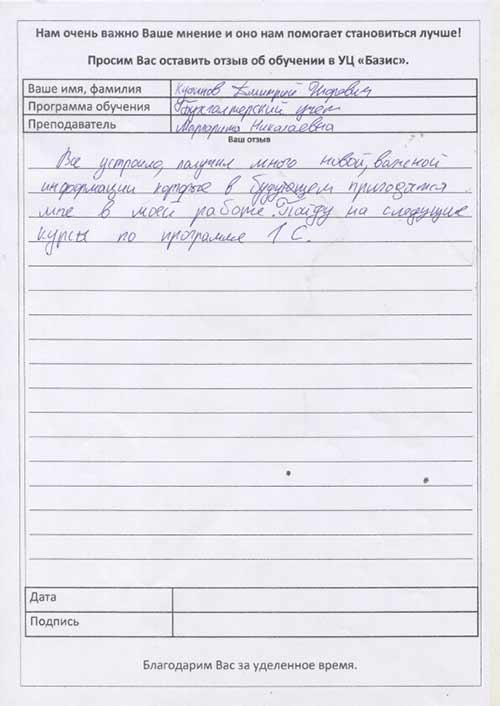 Нам очень важно Ваше мнение и оно нам помогает становиться лучше!
Просим Вас оставить отзыв об обучении в УЦ «Базис».
Ваше имя, фамилия Дмитрий Игоревич
Программа обучения Бухгалтерский учет
Преподаватель Маргарита Николаевна
Ваш отзыв
Все устроило, получил много новой, важной
информации которые в будующем пригодятся
мне в моей работе. Пойду на следущие
курсы по программе 1С.
Дата
Подпись
Благодарим Вас за уделенное время.